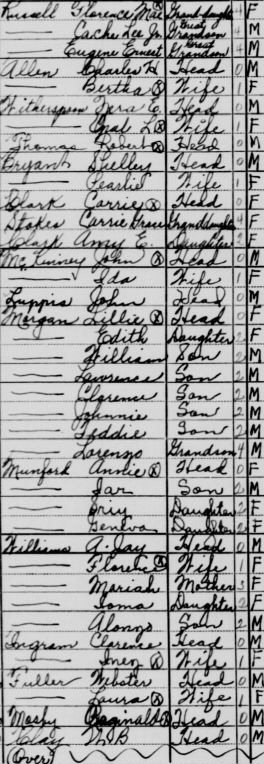 Russell Florence Mae Ⓧ Grand-daughter 4 F
— Cache Lee Jr. Great Grandson 4 M
— Eugene Ernest Great Grandson 4 M
Allen Charles H Head 0 M
— Bertha Ⓧ Wife 1 F
Witherspoon E. Head 0 M
— Opal L Ⓧ Wife 1 F
Thomas Robert Ⓧ Head 0 M
Bryant Shelley Head 0 M
— Pearlie Wife 1 F
Clark Carrie Ⓧ Head 0 F
Stokes Carrie Granddaughter 4 F
Clark Amy E. Daughter 2 F
John Ⓧ Head 0 M
— Ida Wife 1 F
John Head 0 M
Morgan Lillie Ⓧ Head 0 F
— Edith Daughter 2 F
— William Son 2 M
— Lawrence Son 2 M
— Clarence Son 2 M
— Johnnie Son 2 M
— Son 2 M
— Lorenzo Grandson 4 M
Munford Annie Ⓧ Head 0 F
— Son 2 M
— Daughter 2 F
— Geneva Daughter 2 F
Williams A. Jay Head 0 M
— Florence Ⓧ Wife 1 F
— Mariah Mother 3 F
— Ioma Daughter 2 F
— Alonzo Son 2 M
Ingram Clarence Head 0 M
— Inez Ⓧ Wife 1 F
Fuller Webster Head 0 M
— Laura Ⓧ Wife 1 F
Mosby Reginald Ⓧ Head 0 M
Clay W.B Head 0 M
(Over)